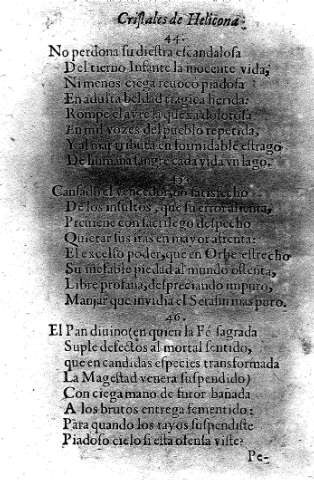 Cristales de Helicona:
44.
No perdona su diestra escandalosa
Del tierno Infante la inocente vida,
Ni menos ciega revocò piadosa
En adusta beldad tragica herida:
Rompe el ayre la quexa dolorosa
En mil vozes del pueblo repetida,
Y al mar tributa en formidable estrago
De humana sangre cada vida un lago.
45.
Cansado el vencedor, no satisfecho
De los insultos, que su error alienta,
Previene con sacrilego despecho
Quietar sus iras en mayor afrenta:
El excelso poder, que en Orbe estrecho
Su inefable piedad al mundo ostenta,
Libre profana, despreciando impuro,
Manjar que invidia el Serafin mas puro.
46.
El Pan divino (en quien la Fé sagrada
Suple defectos al mortal sentido,
que en candidas especies transformada
La Magestad venera suspendido)
Con ciega mano de furor bañada
A los brutos entrega fementido:
Para quando los rayos suspendiste
Piadoso cielo si esta ofensa viste?
Pe-